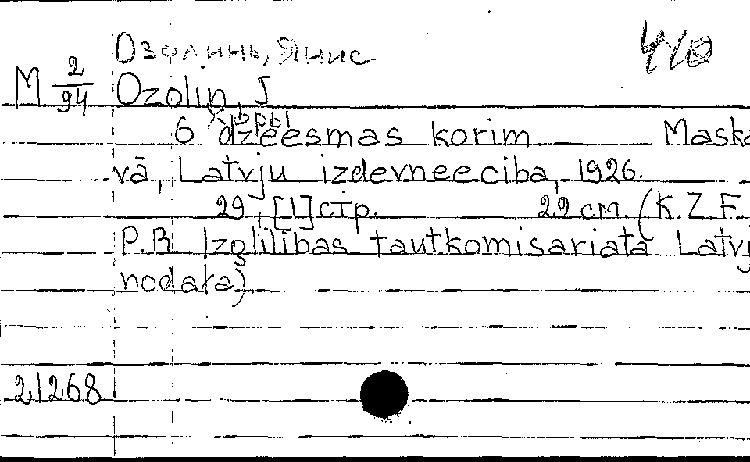 Озолинь, Янис
M 2/94 Ozolin, J
Хоры
6 dzeesmas korim Maska
vā, Latvju izdevneeciba, 1926.
29, [1] стр. 29 cm. (K.Z.F.
P.R Izglītības tautkomisariata Latvj
nodaļa)
21268